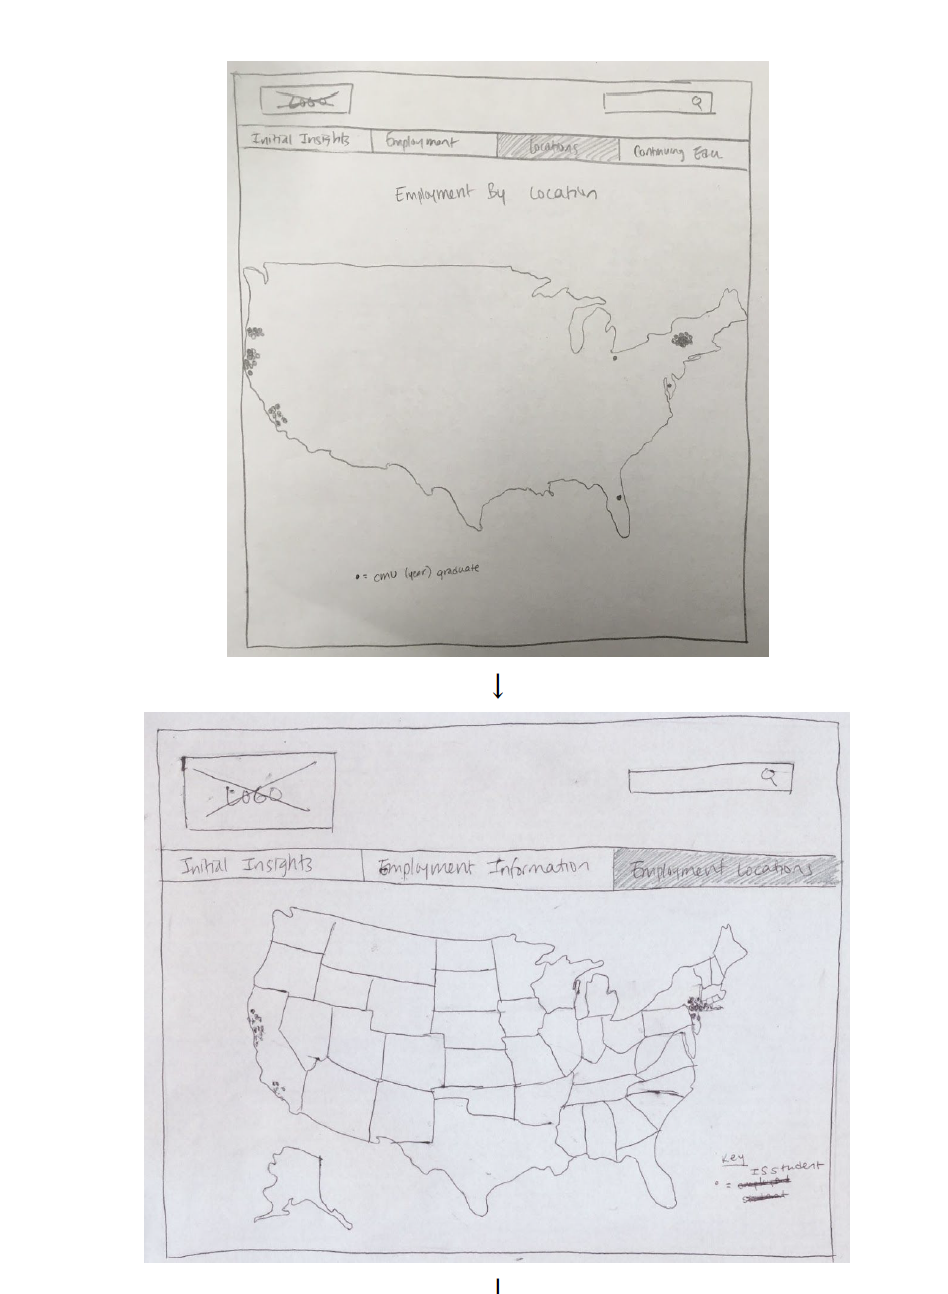 LOGO
Initial Insights
Employment
Locations
Continuing Edu
Employment By Location
• = CMU (year) graduate
↓
LOGO
Initial Insights
Employment Information
Employment Locations
Key
IS Student
• =